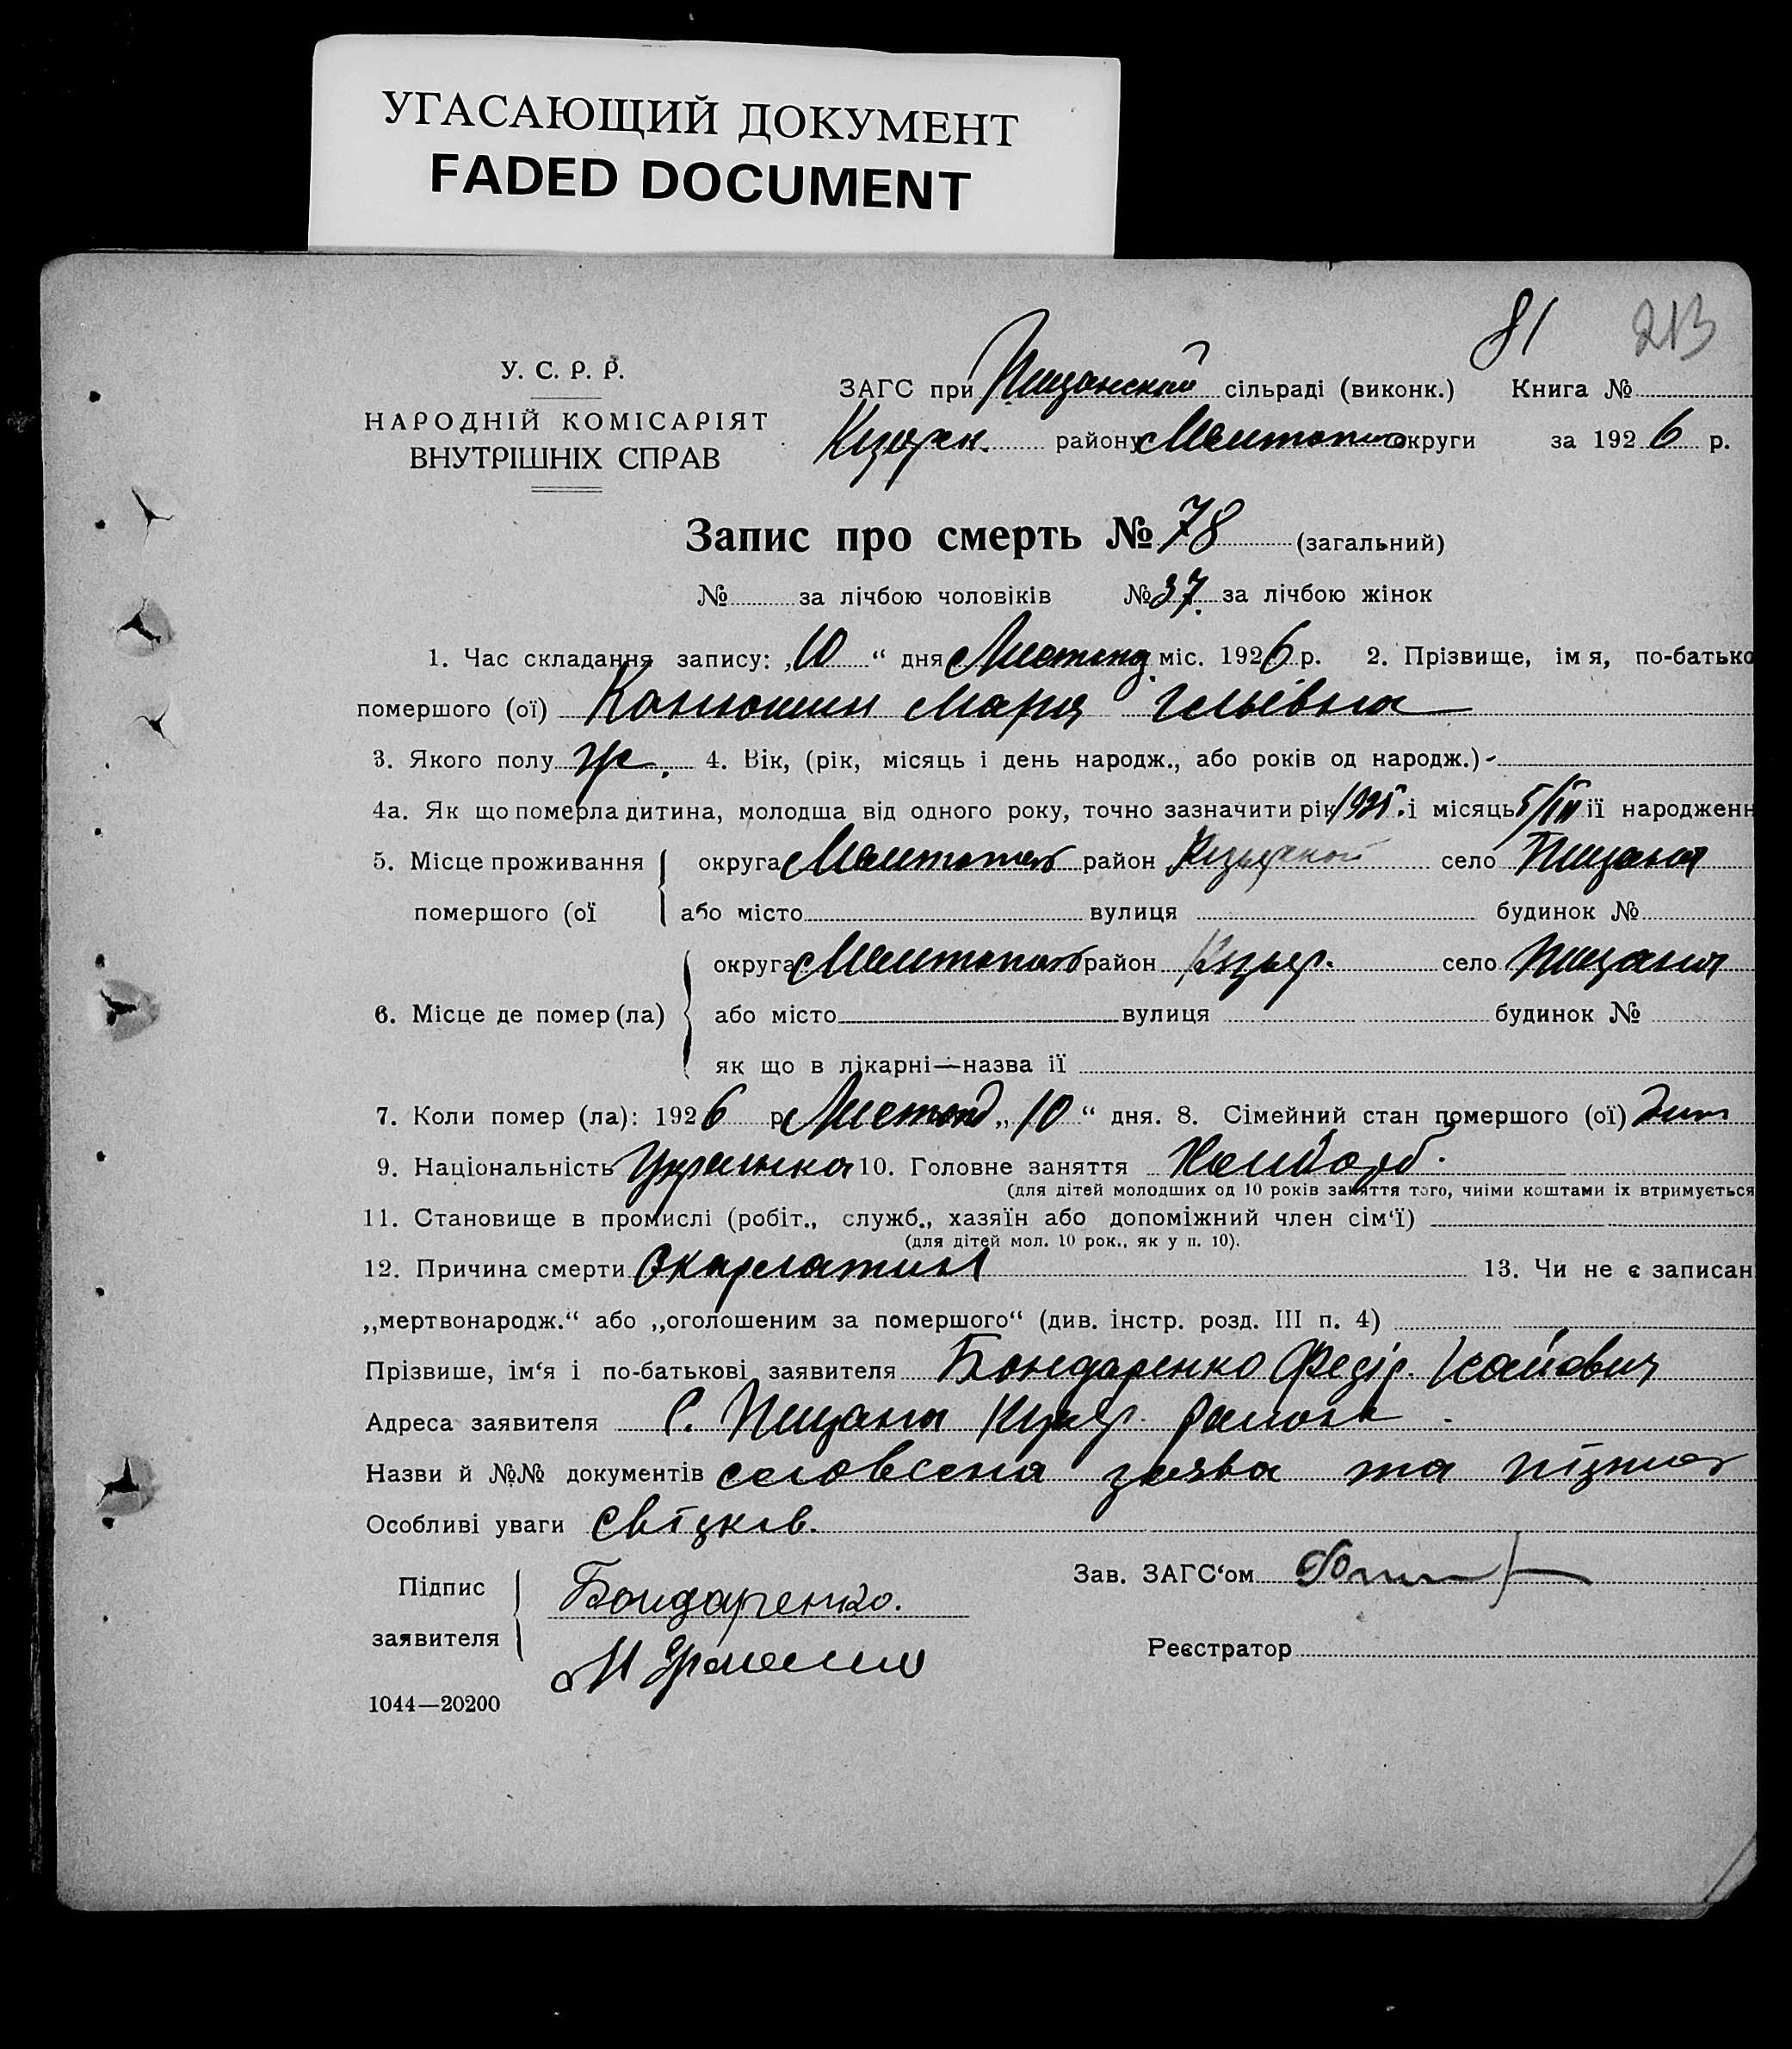 УГАСАЮЩИЙ ДОКУМЕНТ
FADED DOCUMENT
81 213
У. С. Р. Р.
НАРОДНІЙ КОМІСАРІЯТ
ВНУТРІШНІХ СПРАВ
ЗАГС при Пищанской сільраді (виконк.) Книга №
району Мелитопол округи за 1926 р.
Запис про смерть № 78 (загальний)
№ за лічбою чоловіків № 37 за лічбою жінок
1. Час складання запису: „10“ дня Листопад міс. 1926 р. 2. Прізвище, ім я, по-батько
помершого (ої) Марія Ільївна
3. Якого полу ж. 4. Вік, (рік, місяць і день народж., або років од народж.) -
4а. Як що померла дитина, молодша від одного року, точно зазначити рік 1925. і місяць 5/III її народженн
5. Місце проживання округа Мелитопол район село Пищана
помершого (ої або місто вулиця будинок №
округа Мелитопол район село Пищана
6. Місце де помер (ла) або місто вулиця будинок №
як що в лікарні—назва ії
7. Коли помер (ла): 1926 р Листопад „10“ дня. 8. Сімейний стан помершого (ої) дит
9. Національність Українка 10. Головне заняття Хлибороб.
(для дітей молодших од 10 років заняття того, чиїми коштами їх втримується
11. Становище в промислі (робіт., служб., хазяїн або допоміжний член сім‘ї)
(для дітей мол. 10 рок., як у п. 10).
12. Причина смерти Скарлатина 13. Чи не є записан
„мертвонародж.“ або „оголошеним за помершого“ (див. інстр. розд. III п. 4)
Прізвише, ім‘я і по-батькові заявителя Бондаренко Федір Ісайович
Адреса заявителя С. Пищана района
Назви й №№ документів словесна заява та
Особливі уваги свідків.
Підпис Бондаренко. Зав. ЗАГС‘ом
заявителя
Реєстратор
1044—20200